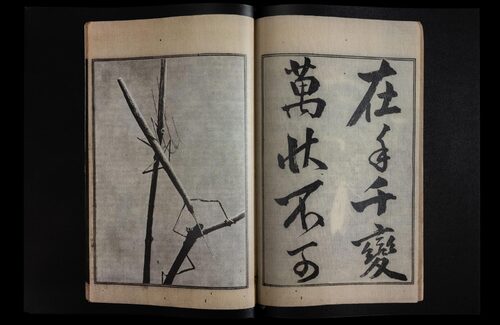 在手千變
萬狀不可